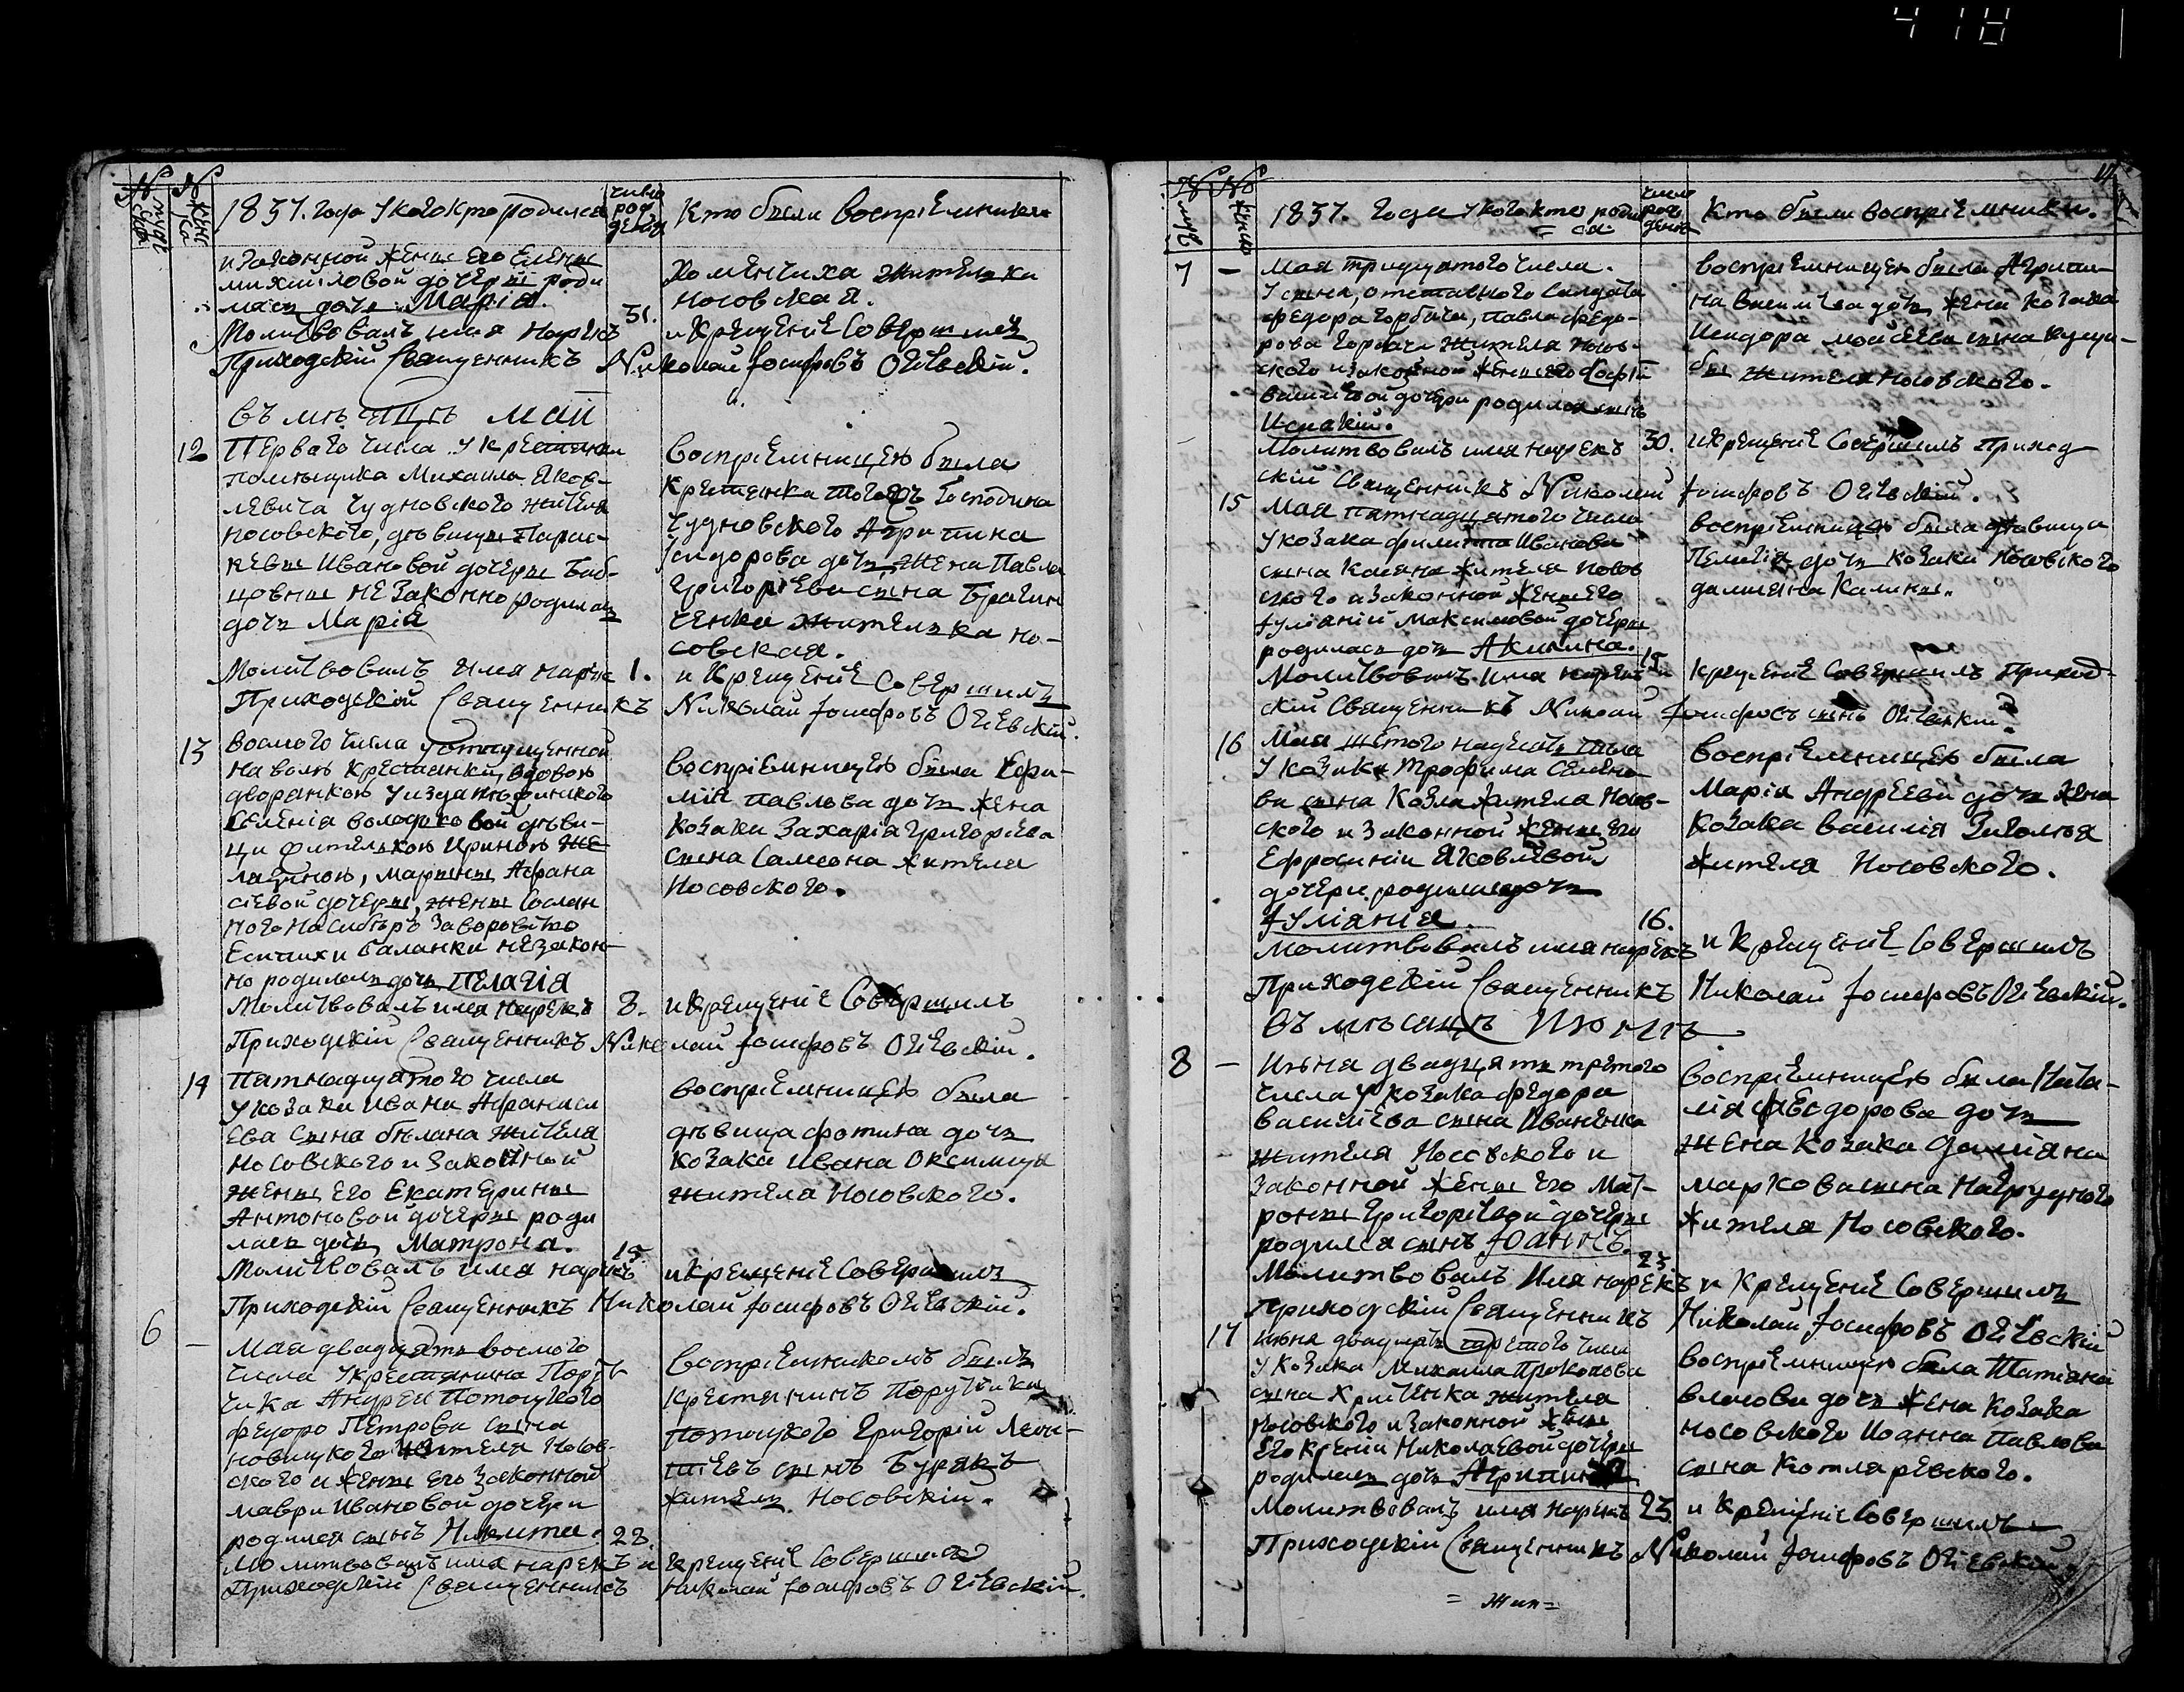 418
№ мужеска
№ женска
1837. года У кого кто родился
число рождения
Кто были воспріемники
и законной жены его Елены
михайловой дочеры роди
лась дочь Марія.
Молитвовалъ имя нарекъ
Приходскій Священникъ
31.
Хоменчиха жителька
Носовская.
и Крещеніе Совершилъ
Николай Іосифовъ Огіевскій.
Въ мѣсяцѣ Маи
12
Перваго числа У крестянки
помѣщика Михаила Яков-
левича Чудновского жителя
носовского, дѣвицы Парас-
кевы Ивановой дочеры Баб-
цовны незаконно родилась
дочь Марія
Молитвовалъ имя нарекъ
Приходскій Священникъ
1.
Воспріемницею была
крестянка тогожъ Господина
Чудновского Агрипина
Исидорова дочь жена Павла
Григоріева сына Брагин
ченка жителька но-
совская.
и Крещеніе Совершилъ
Николай Іосифовъ Огіевскій.
13
Восмого числа у отпущенной
на волю крестянки, вдовою
дворянкою
селенія
лѣзною, Марины Афана
сіевой дочеры, жены Сослан
ного на Сибѣръ за воровство
Галанки незакон-
но родилась дочь Пелагія
Молитвовалъ имя нарекъ
Приходскій Священникъ
8.
Воспріемницею была Ефи-
мія Павлова дочь жена
Козака Захарія Григоріева
сына Самсона жителя
Носовского.
и крещеніе Совершилъ
Николай Іосифовъ Огіевскій.
14
Пятнадцятого числа
У козака Ивана Афанаси
ева сына бѣлана жителя
Носовского и законной
жены Его Екатерины
Антоновой дочеры роди
лась дочь Матрона.
Молитвовалъ имя нарекъ
Приходскій Священникъ
15
Воспріемницею была
дѣвица фотина дочь
козака Ивана
жителя Носовского.
и крещеніе Совершилъ
Николай Іосифовъ Огіевскій.
6
—
Мая двадцять восмого
числа У крестянина Порут
чика Андрея Потоцкого
федора Петрова сына
Новицкого жителя Носов-
ского и жены его законной
Маври Ивановой дочери
родился сынъ Никита.
Молитвовалъ имя нарекъ и
Приходскій Священникъ
28.
Воспріемникомъ былъ
крестянинъ Порутчика
потоцкого Григорій Леон-
тіевъ сынъ Бурякъ
житель Носовскій.
крещеніе Совершилъ
Николай Іосифовъ Огіевскій.
№ муж
№ женска
1837. Года У кого кто родил
=ся=
число рождения
Кто были воспріемники.
7
—
Мая тридцятого числа.
У сына, отставного Салдата
федора Горбача, павла федо-
рова Горбача жителя Носов-
ского и законной жены его Софіи
василіевой дочери родился сынъ
Исаакій.
Молитвовалъ имя нарекъ
скій Священникъ Николай
30.
Воспріемницею была Агрипи-
на дочь жена козака
Исидора мойсеева сына
жителя Носовского.
и крещеніе Совершилъ Приход
Іосифовъ Огіевскій.
15
Мая пятнадцятого числа
У козака филиппа Иванова
сына Касяна жителя Носов
ского и законной жены Его
Іуліаніи Максимовой дочеры
родилась дочь Акилина.
Молитвовалъ имя нарекъ
скій Священникъ Николай
15
воспріемницею была дѣвица
Пелагія дочь козака Носовского
даміяна Калины.
крещеніе Совершилъ Приход-
Іосифовъ сынъ Огіевскій.
16
Мая шестого надесять числа
У козака Трофима Семено-
ва сына Козла жителя Носов-
ского и законной жены его
Ефросиніи Яковлевой
дочери родилась дочь
Іуліянія.
Молитвовалъ имя нарекъ
Приходскій Священникъ
16.
Воспріемницею была
Марія Андреева дочь жена
Козака Василія
жителя Носовского.
и Крещеніе Совершилъ
Николай Іосифовъ Огіевскій.
Въ мѣсяцѣ Июнѣ
8
—
Июна двадцять третого
числа У козака федора
Василіева сына Иваненка
жителя Носовского и
законной жены его Мат-
роны Григоріевой дочеры
родился сынъ Іоаннъ.
Молитвовалъ Имя нарекъ
Приходскій Священникъ
23.
Воспріемницею была Ната-
лія Феодорова дочь
жена козака Даміяна
маркова сына
жителя Носовского.
и Крещеніе Совершилъ
Николай Іосифовъ Огіевскій
17
Июна двадцять третого числа
У Козака Михаила Прокопова
сына жителя
носовского и законной жены
его Ксении Николаевой дочеры
родилась дочь Агрипина
Молитвовалъ имя нарекъ
Приходскій Священникъ
23.
Воспріемницею была Татіяна
власова дочь жена козака
Носовского Иоанна Павлова
сына Котляревского.
и Крещеніе Совершилъ
Николай Іосифовъ Огіевскій.